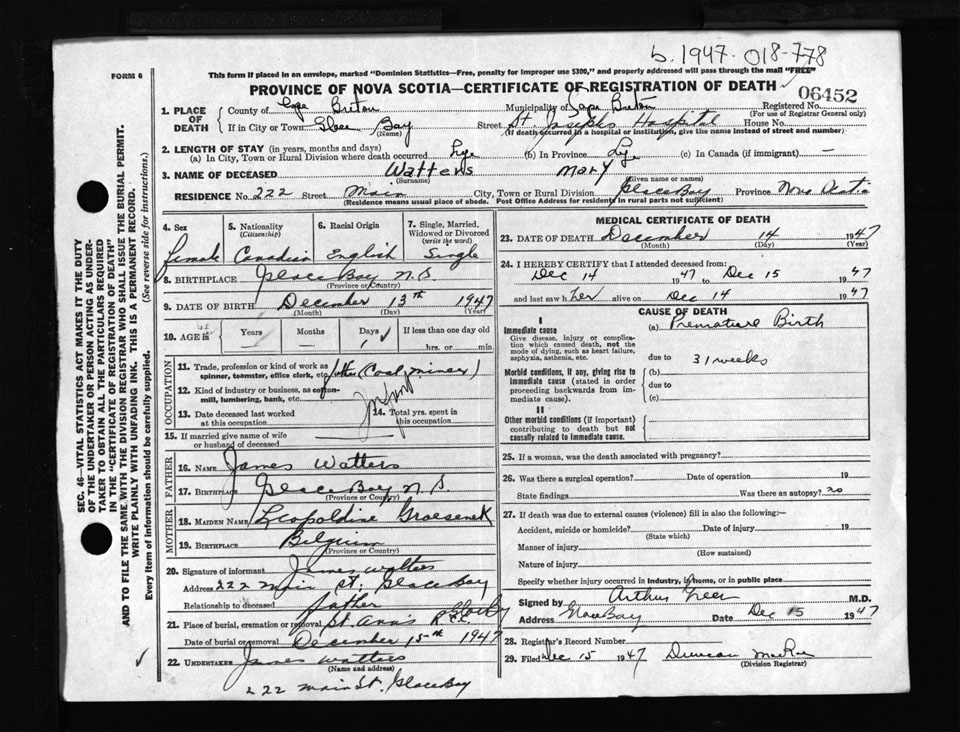 b. 1947-018-778
FORM 6
This form if placed in an envelope, marked "Dominion Statistics—Free, penalty for improper use $300," and properly addressed will pass through the mail "FREE"
PROVINCE OF NOVA SCOTIA—CERTIFICATE OF REGISTRATION OF DEATH
06452
1. PLACE OF DEATH
County of Cape Breton Municipality of Cape Breton Registered No.
(For use of Registrar General only)
If in City or Town Glace Bay Street St. Josephs Hospital House No.
(Name) (If death occurred in a hospital or institution, give the name instead of street and number)
2. LENGTH OF STAY (in years, months and days)
(a) In City, Town or Rural Division where death occurred Life (b) In Province Life (c) In Canada (if immigrant) —
3. NAME OF DECEASED Watters Mary
(Surname) (Given name or names)
RESIDENCE No. 222 Street Main City, Town or Rural Division Glace Bay Province Nova Scotia
(Residence means usual place of abode. Post Office Address for residents in rural parts not sufficient)
4. Sex 5. Nationality (Citizenship) 6. Racial Origin 7. Single, Married, Widowed or Divorced (write the word)
female Canadian English Single
8. BIRTHPLACE Glace Bay N.S
(Province or Country)
9. DATE OF BIRTH December 13th 1947
(Month) (Day) (Year)
10. AGE is Years Months Days If less than one day old
— — 1 hrs. or min.
OCCUPATION
11. Trade, profession or kind of work as spinner, teamster, office clerk, etc. father (Coal miner)
12. Kind of industry or business, as cotton-mill, lumbering, bank, etc.
13. Date deceased last worked at this occupation
14. Total yrs. spent in this occupation
15. If married give name of wife or husband of deceased
FATHER
16. NAME James Watters
17. BIRTHPLACE Glace Bay N S
(Province or Country)
MOTHER
18. MAIDEN NAME Leopoldine Groesenek
19. BIRTHPLACE Belgium
(Province or Country)
20. Signature of informant James Watters
Address 222 Main St. Glace Bay
Relationship to deceased father
21. Place of burial, cremation or removal St. Ann's R.C.
Date of burial or removal December 15th 1947
22. UNDERTAKER James Watters
(Name and address)
222 Main St. Glace Bay
MEDICAL CERTIFICATE OF DEATH
23. DATE OF DEATH December 14 1947
(Month) (Day) (Year)
24. I HEREBY CERTIFY that I attended deceased from:
Dec 14 1947 to Dec 15 1947
and last saw her alive on Dec 14 1947
CAUSE OF DEATH
I
Immediate cause
Give disease, injury or complication which caused death, not the mode of dying, such as heart failure, asphyxia, asthenia, etc.
(a) Premature Birth
due to 31 weeks
Morbid conditions, if any, giving rise to immediate cause (stated in order proceeding backwards from immediate cause).
(b)
due to
(c)
II
Other morbid conditions (if important) contributing to death but not causally related to immediate cause.
25. If a woman, was the death associated with pregnancy?
26. Was there a surgical operation? Date of operation 19
State findings Was there an autopsy? no
27. If death was due to external causes (violence) fill in also the following:—
Accident, suicide or homicide? Date of injury 19
(State which)
Manner of injury
(How sustained)
Nature of injury
Specify whether injury occurred in industry, in home, or in public place
Signed by Arthur Greer M.D.
Address Glace Bay Date Dec 15 1947
28. Registrar's Record Number
29. Filed Dec 15 1947 Duncan MacRae
(Division Registrar)
SEC. 46—VITAL STATISTICS ACT MAKES IT THE DUTY
OF THE UNDERTAKER OR PERSON ACTING AS UNDER-
TAKER TO OBTAIN ALL THE PARTICULARS REQUIRED
IN THE "CERTIFICATE OF REGISTRATION OF DEATH"
AND TO FILE THE SAME WITH THE DIVISION REGISTRAR WHO SHALL ISSUE THE BURIAL PERMIT.
WRITE PLAINLY WITH UNFADING INK. THIS IS A PERMANENT RECORD.
Every item of information should be carefully supplied. (See reverse side for instructions.)